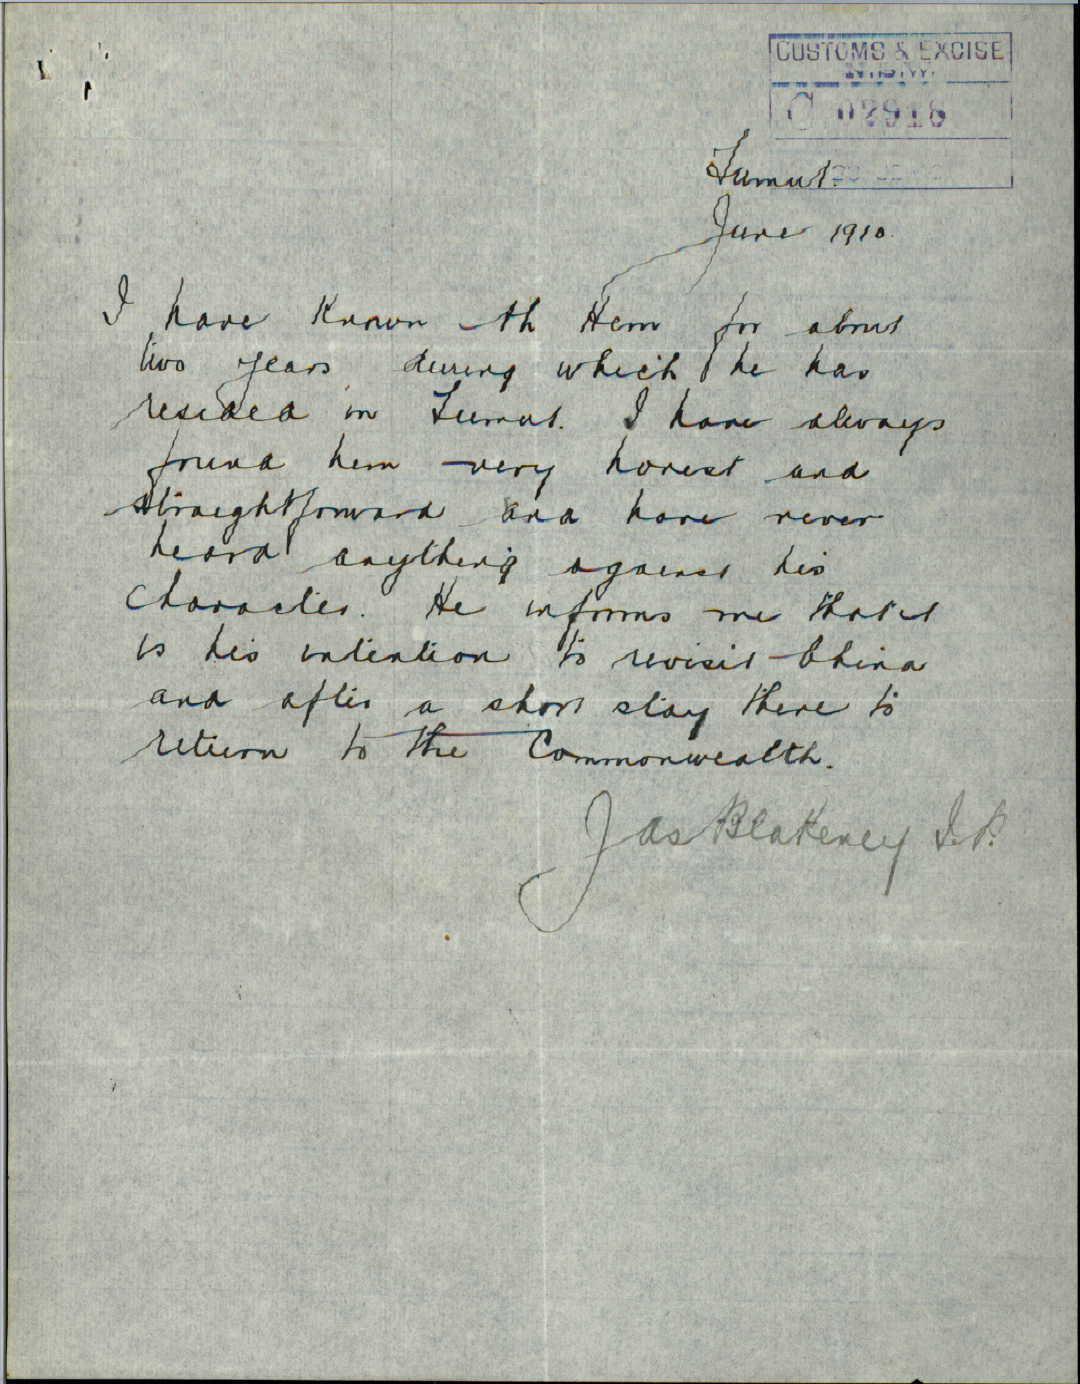 CUSTOMS & EXCISE
N.S.W.
C 02918
Tumut.
June 1910.
I have known Ah Hem for about
two years during which he has
resided in Tumut. I have always
found him very honest and
straightforward and have never
heard anything against his
character. He informs me that it
is his intention to revisit China
and after a short stay there to
return to the Commonwealth.
Jas Blakeney J.P.